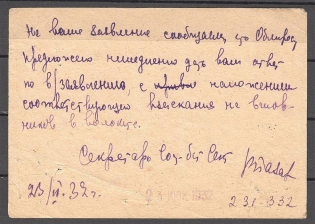 На ваше заявление сообщаем, что Облпрос
предложено немедленно дать вам ответ
по в/заявлению, с наложением
соответствующего взыскания на винов-
ников в волоките.
Секретарь
23/VI. 32 г.
231-332